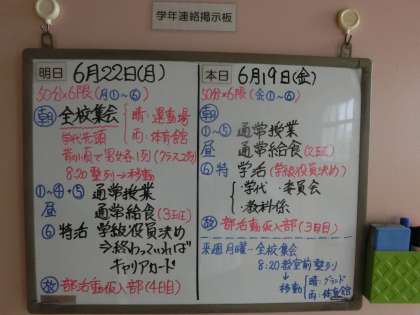 学年連絡掲示板
明日 6月22日(月)
50分×6限(月①~⑥)
朝 全校集会
晴・運動場
雨・体育館
学代先頭
前小頃で男女各1列(クラス2列)
8:20整列→移動
1~4・5 通常授業
昼 通常給食(3五正)
⑥特活 学級役員決め
⇒終わっていれば
キャリアカード
放 部活動仮入部(4日目)
本日 6月19日(金)
50分×6限(金①~⑥)
朝
1~5 通常授業
昼 通常給食
⑥特 学活(学級役員決め)
・学代 ・委員会
・教科係
放 部活動仮入部(3日目)
来週月曜-全校集会
8:20教室前整列
↓
移動
晴・グランド
雨・体育館